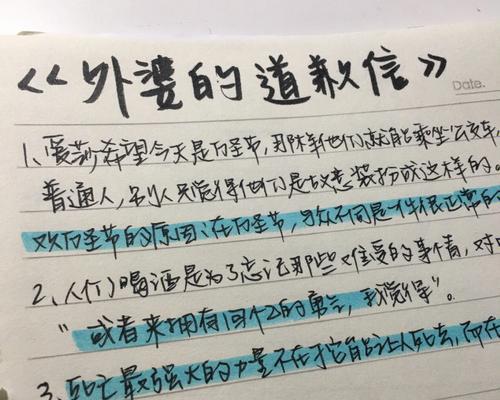 《外婆的道歉信》
Date.
1、爱莎希望今天是万圣节,那样他们就能乘坐公交车,
普通人,别人只觉得他们是故意装扮成这样的。
欢万圣节的原因:在万圣节,与众不同是一件很正常的
2、人们喝酒是为了忘记那些难受的事情,对
"或者来拥有回忆的勇气,我觉得"。
3、死亡最强大的力量不在于它能让人死去,而在